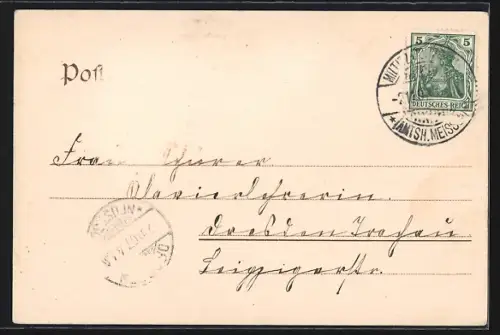 Post
5 5
DEUTSCHES REICH
(AMTSH. MEISSEN)
Frau Schurer
Clavierlehrerin
Dresden Trachau
Leipzigerstr.